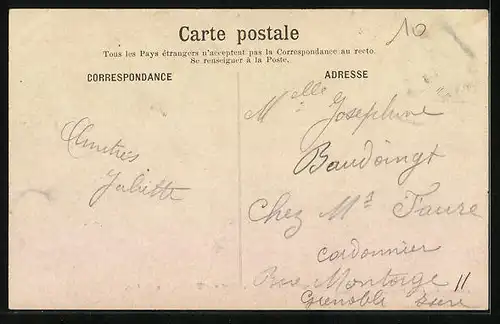 Carte postale
10
Tous les Pays étrangers n'acceptent pas la Correspondance au recto.
Se renseigner à la Poste.
CORRESPONDANCE
ADRESSE
Amitiés
Juliette
Melle Josephine
Baudoingt
Chez Mr Faure
cordonnier
Rue Montorge 11
Grenoble Isère